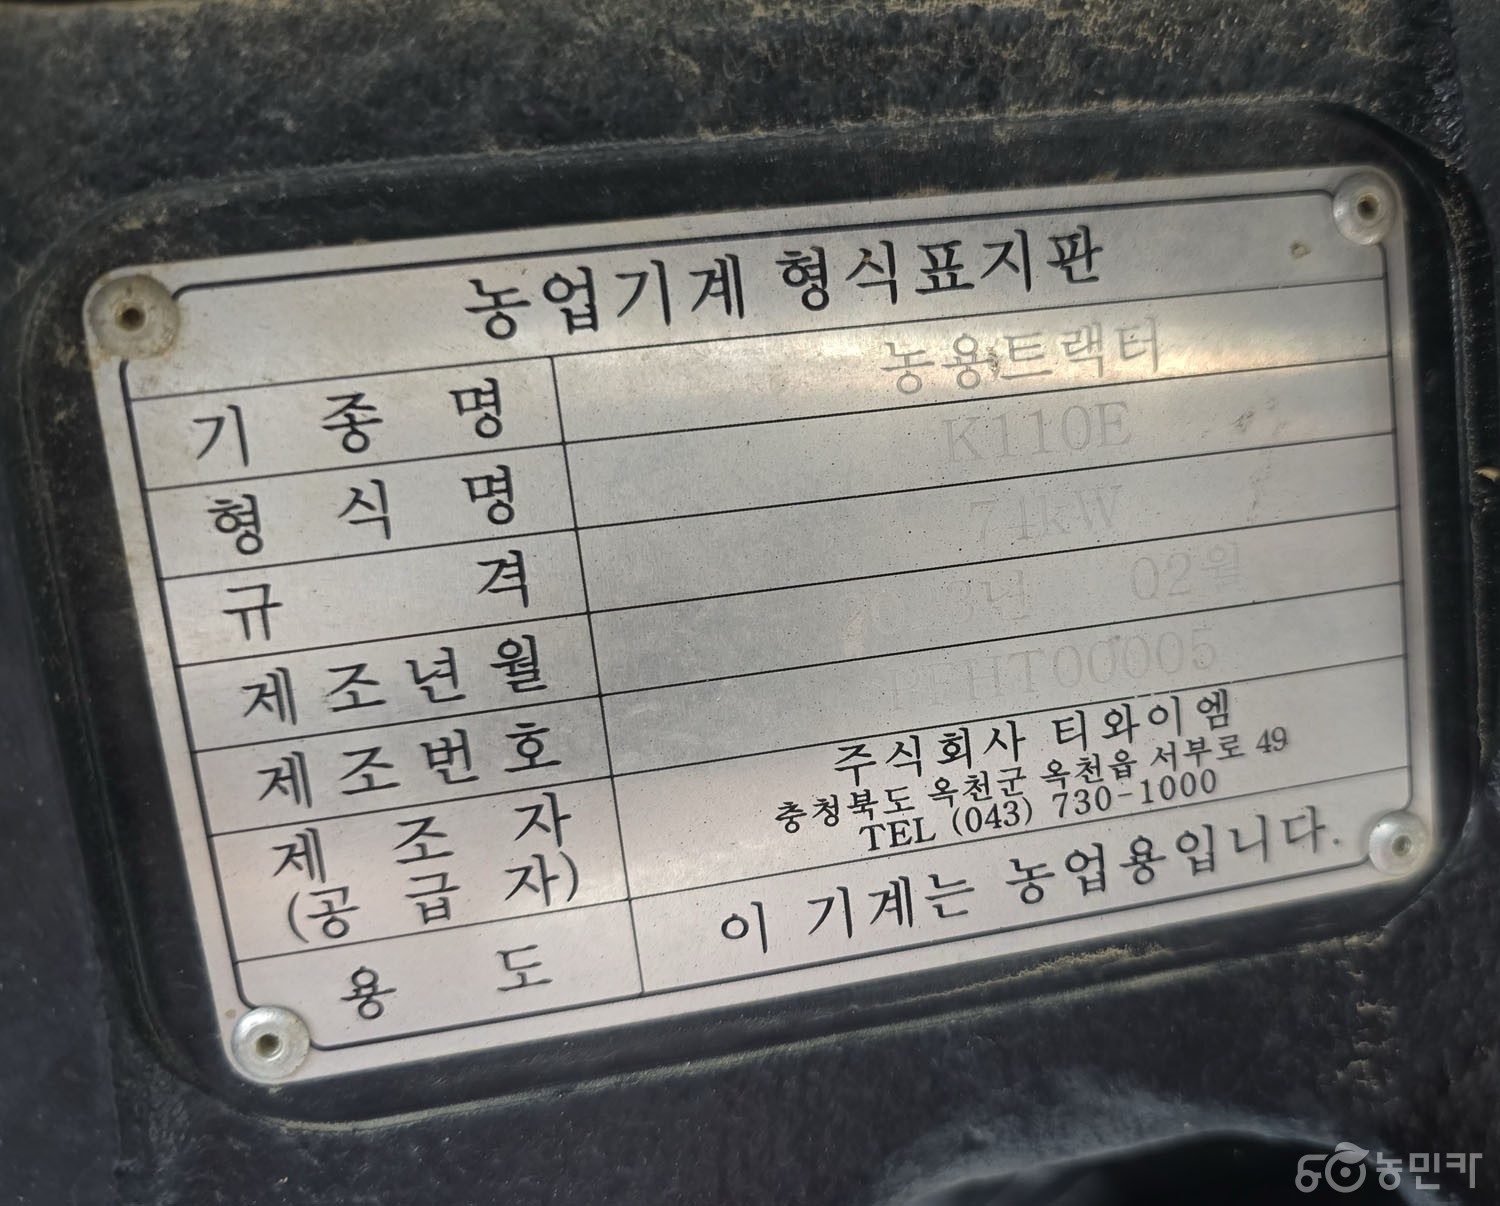 농업기계 형식표지판
기종명 농용트랙터
형식명 K110E
규격 74kW
제조년월 02월
제조번호
제조자 주식회사 티와이엠
(공급자) 충청북도 옥천군 옥천읍 서부로 49
TEL (043) 730-1000
용도 이 기계는 농업용입니다.
농민카